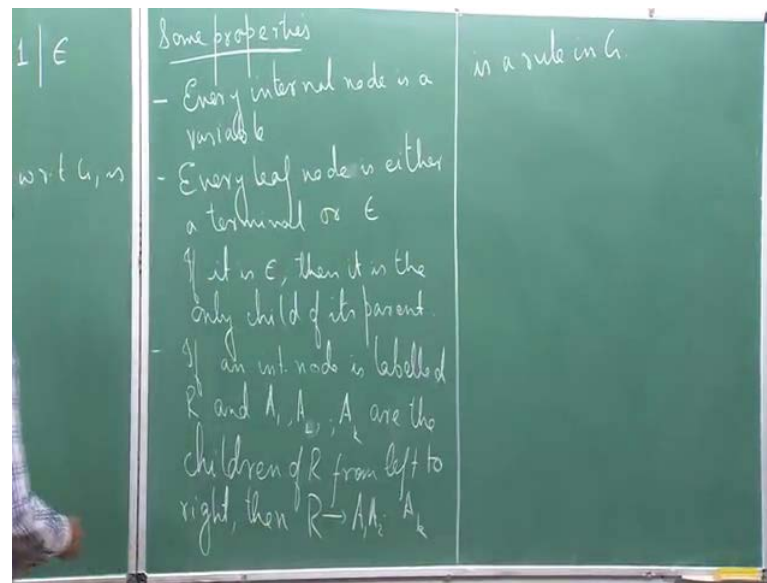 1 | ϵ
w.r.t G, is
Some properties
- Every internal node is a
variable
- Every leaf node is either
a terminal or ϵ
If it is ϵ, then it is the
only child of its parent.
- If an int. node is labelled
R and A₁, A₂, , Aₖ are the
children of R from left to
right, then R → A₁A₂ Aₖ
is a rule in G.